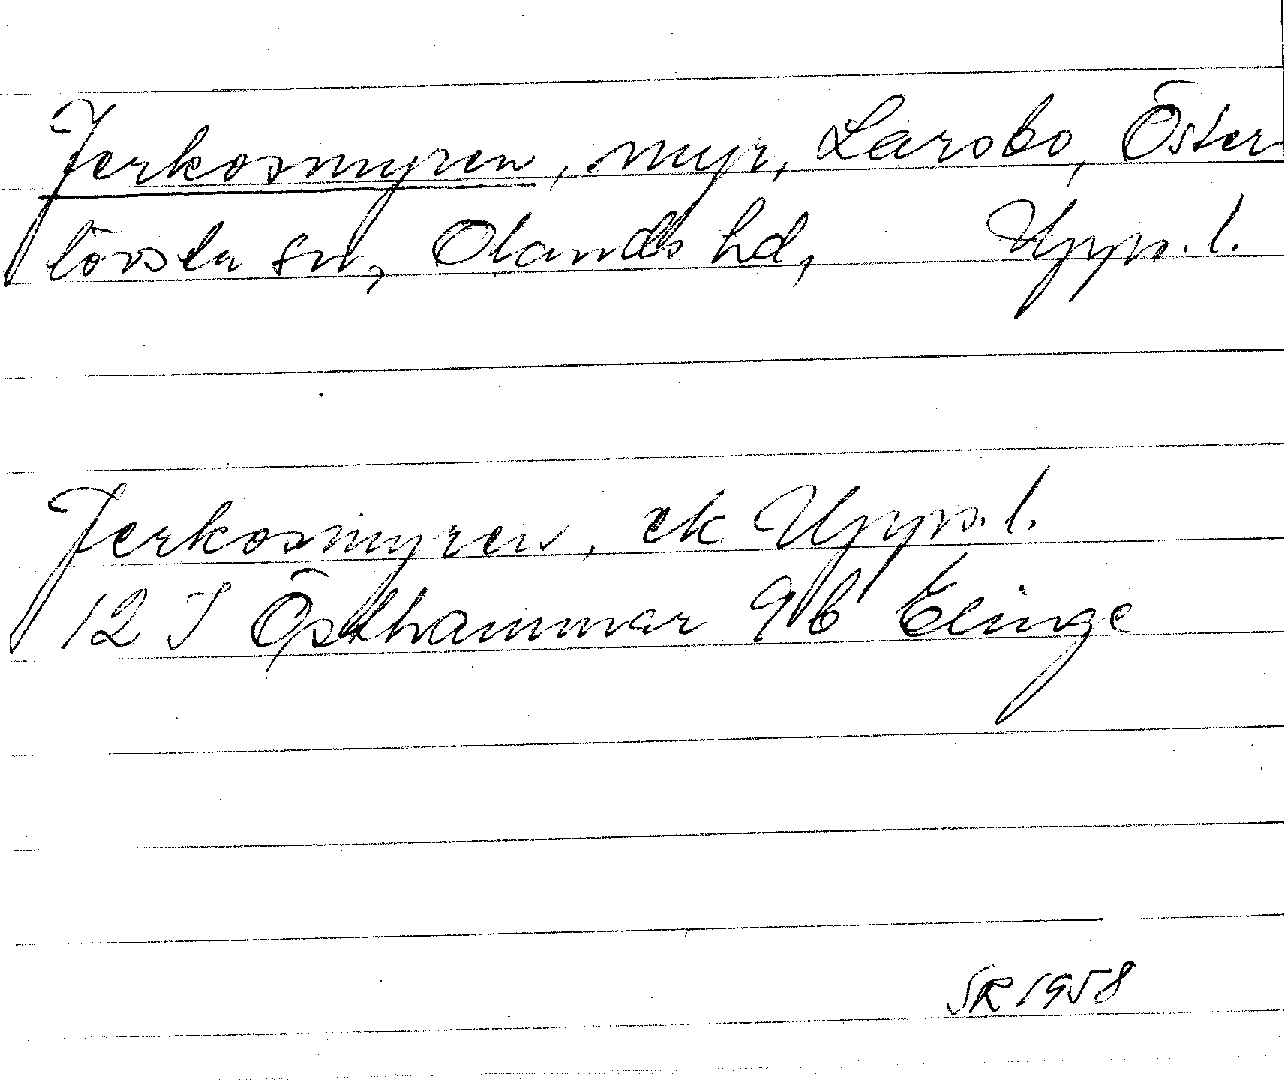 Jerkosmyren, myr, Larsbo, Öster
lövsta sn, Olands hd, Uppl.
Jerkosmyren, ek Uppl.
12 I Östhammar 9 b Elinge
SR 1958